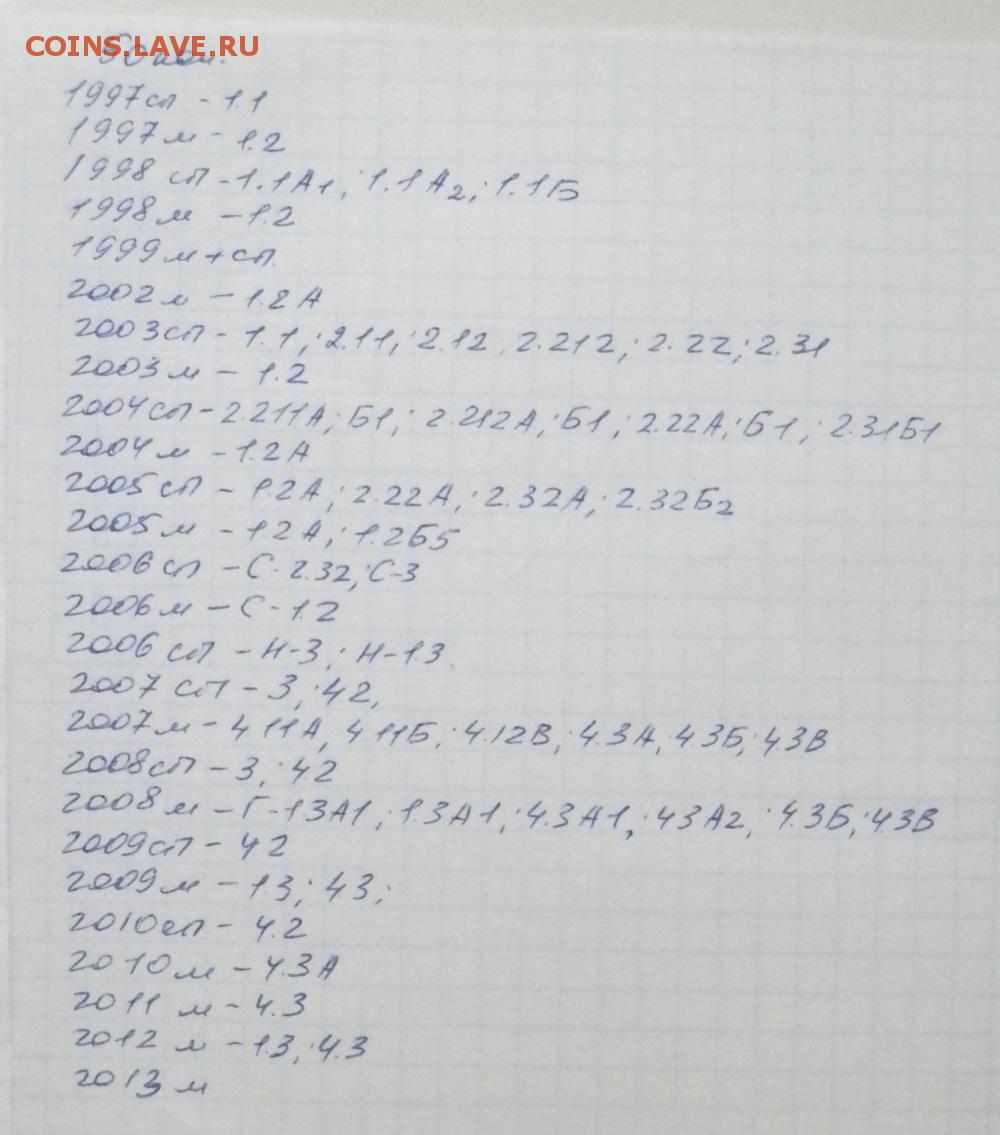 COINS.LAVE.RU
50 коп.
1997сп - 1.1
1997м - 1.2
1998 сп - 1.1А1; 1.1А2; 1.1Б
1998м - 1.2
1999м+сп.
2002м - 1.2А
2003сп - 1.1; 2.11; 2.12, 2.212; 2.22; 2.31
2003м - 1.2
2004сп - 2.211А; Б1; 2.212А; Б1; 2.22А; Б1; 2.31Б1
2004м - 1.2А
2005сп - 1.2А; 2.22А; 2.32А; 2.32Б2
2005м - 1.2А; 1.2Б5
2006сп - С-2.32; С-3
2006м - С-1.2
2006 сп - Н-3; Н-1.3.
2007 сп - 3; 42,
2007м - 4.11А, 4.11Б; 4.12В; 4.3А, 4.3Б; 4.3В
2008сп - 3; 42
2008м - Г-1.3А1; 1.3А1; 4.3А1; 43А2; 4.3Б; 4.3В
2009сп - 42
2009м - 1.3; 43;
2010сп - 4.2
2010м - 4.3А
2011 м - 4.3
2012 м - 1.3; 4.3
2013 м